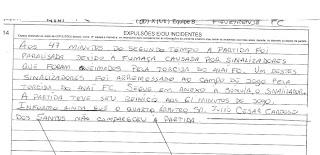 (X) XVII) EQUIPE B FIGUEIRENSE FC
14 EXPULSÕES E/OU INCIDENTES
AOS 47 MINUTOS DO SEGUNDO TEMPO A PARTIDA FOI
PARALISADA DEVIDO A FUMAÇA CAUSADA POR SINALIZADORES
QUE FORAM QUEIMADOS PELA TORCIDA DO AVAÍ FC. UM DESTES
SINALIZADORES FOI ARREMESSADO AO CAMPO DE JOGO PELA
TORCIDA DO AVAÍ FC. SEGUE EM ANEXO A SÚMULA, O SINALIZADOR.
A PARTIDA TEVE SEU REINICIO AOS 61 MINUTOS DE JOGO.
INFORMO AINDA QUE O QUARTO ÁRBITRO SR. JULIO CESAR CARDOSO
DOS SANTOS NÃO COMPARECEU A PARTIDA